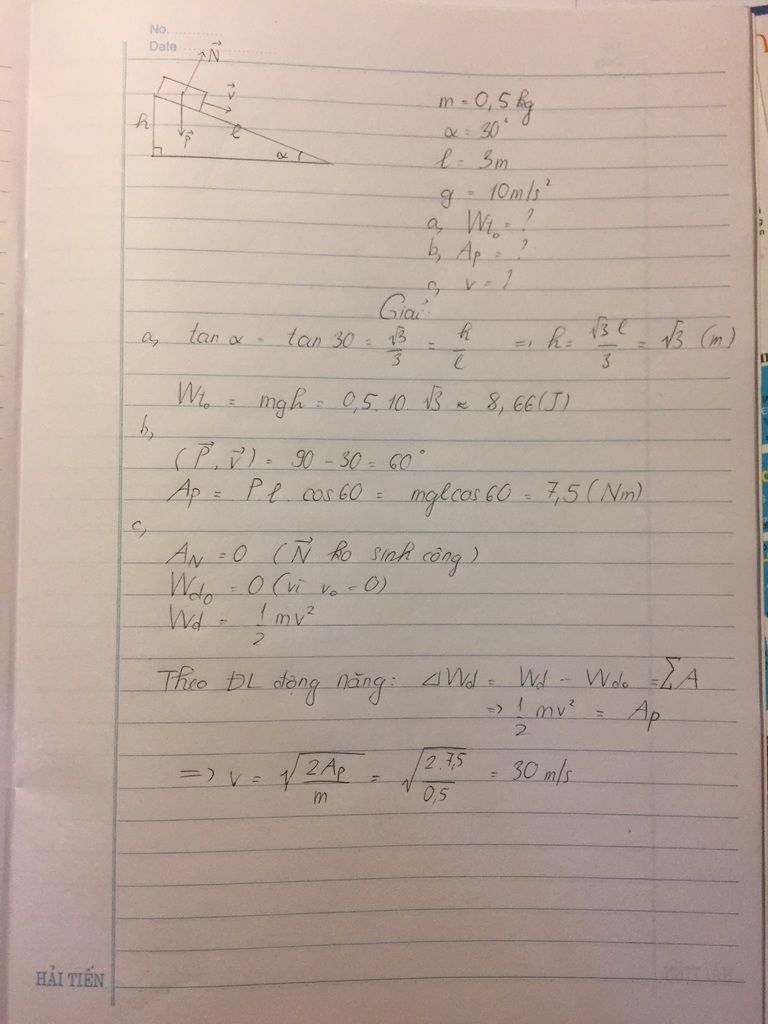 No. ............
Date ............
N⃗
v⃗
h
P⃗
l
α
m = 0,5 kg
α = 30°
l = 3m
g = 10m/s²
a, Wt₀ = ?
b, Ap = ?
c, v = ?
Giải:
a, tan α = tan 30 = √3/3 = h/l => h = √3 l/3 = √3 (m)
Wt₀ = mgh = 0,5. 10. √3 ≈ 8,66(J)
b,
(P⃗, v⃗) = 90 - 30 = 60°
Ap = P l. cos60 = mglcos60 = 7,5 (Nm)
c,
A_N = 0 (N⃗ ko sinh công)
Wđ₀ = 0 (vì v₀ = 0)
Wđ = 1/2 mv²
Theo ĐL động năng: ΔWđ = Wđ - Wđ₀ = ΣA
=> 1/2 mv² = Ap
=> v = √(2Ap/m) = √(2.7,5/0,5) = 30 m/s
HẢI TIẾN